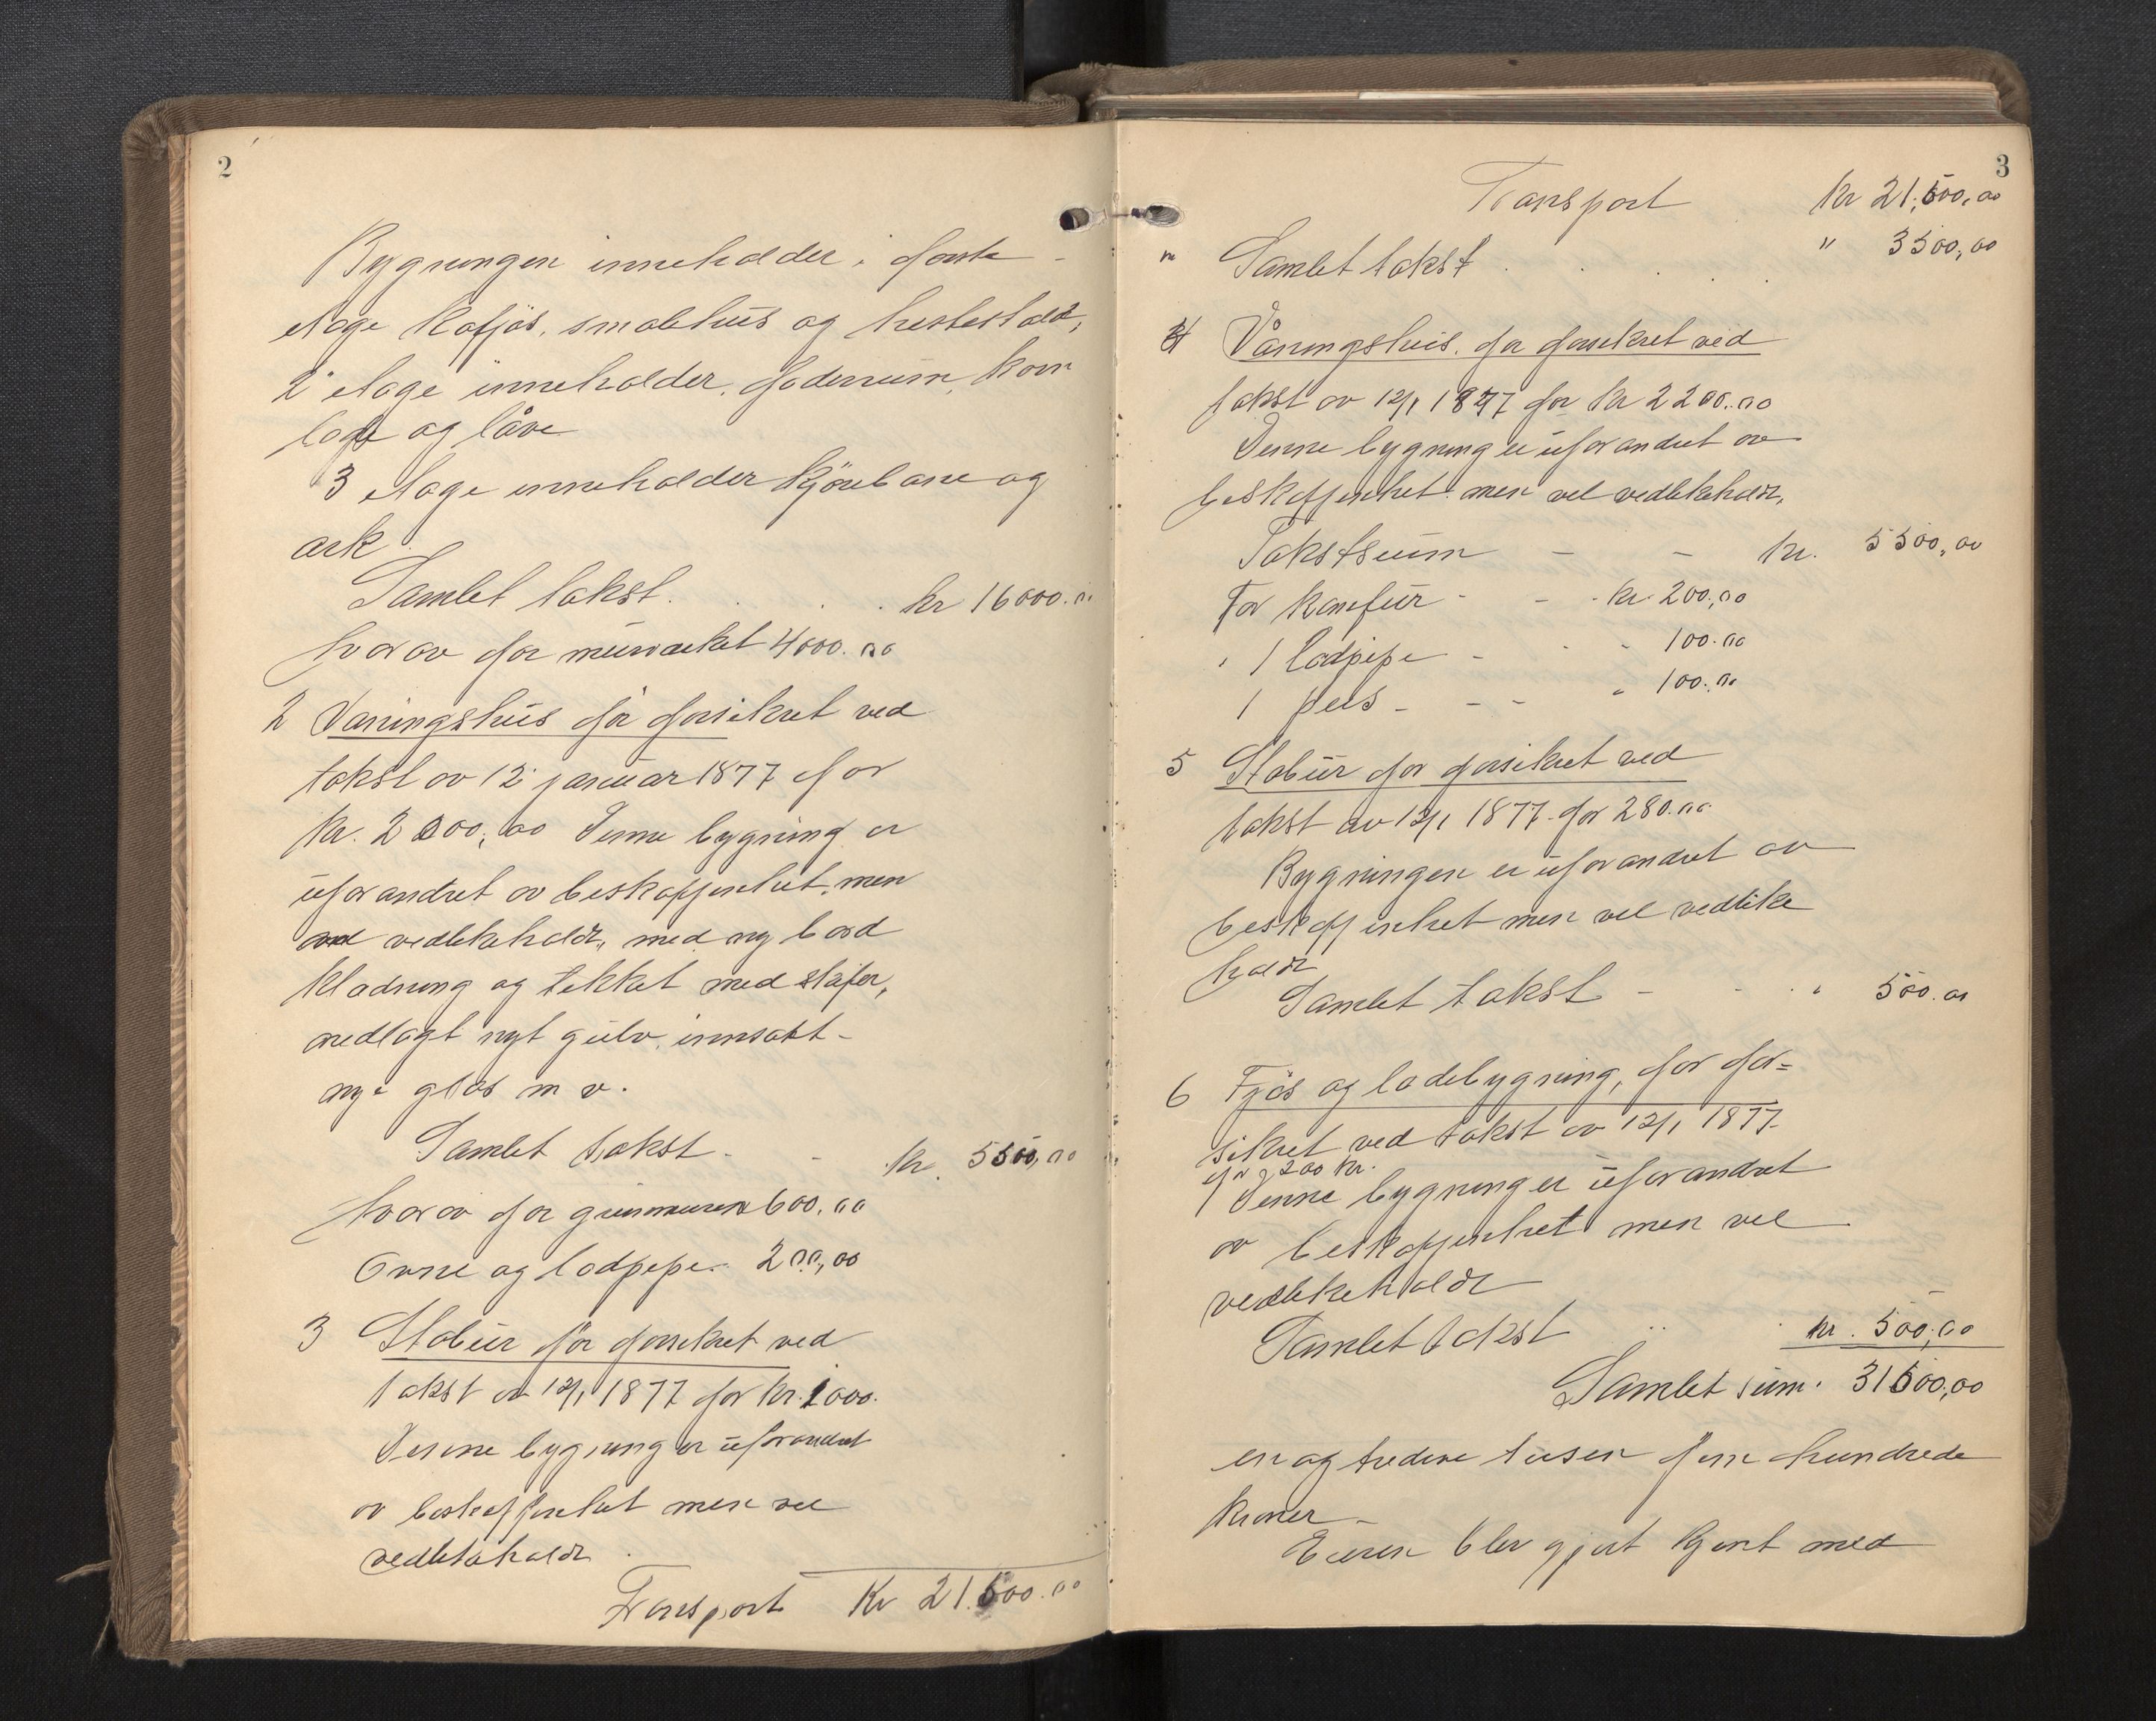 2
Bygningen inneholder i første
etage Kofjøs, smalehus og hestestald,
2 etage inneholder foderrum, korn
loge og låve
3 etage inneholder kjørebane og
ark.
Samlet takst . . . kr 16000.00
hvorav for murværket 4000.00
2 Våningshus før forsikret ved
takst av 12 januar 1877 for
kr. 2000,00 Denne bygning er
uforandret av beskaffenhet, men
vedlikeholdt, med ny bord
klædning og tekket med skifer,
nedlagt nyt gulv, innsatt
nye glas m v.
Samlet takst - - kr. 5500,00
hvorav for grunmuren 600,00
Ovne og lodpipe 200,00
3 Stabur før forsikret ved
takst av 12/1 1877 for kr. 1000.
Denne bygning er uforandret
av beskaffenhet men vel
vedlikeholdt.
Transport Kr 21.500.00
3
Transport kr 21,500,00
Samlet takst . . . " 3500,00
4 Våningshus, før forsikret ved
takst av 12/1 1877 for kr 2200.00
Denne bygning er uforandret av
beskaffenhet men vel vedlikeholdt,
Takstsum - - kr. 5500,00
For komfur - - kr. 200,00
" 1 lodpipe - - - 100.00
1 peis - - - " 100.00
5 Stabur før forsikret ved
takst av 12/1 1877 for 280.00
Bygningen er uforandret av
beskaffenhet men vel vedlike
holdt
Samlet takst - - " 500.00
6 Fjøs og ladebygning, før for=
sikret ved takst av 12/1 1877
for 200 kr.
Denne bygning er uforandret
av beskaffenhet men vel
vedlikeholdt
Samlet takst kr. 500,00
Samlet sum. 31500,00
en og tredive tusen fem hundrede
kroner -
Eieren blev gjort kjent med